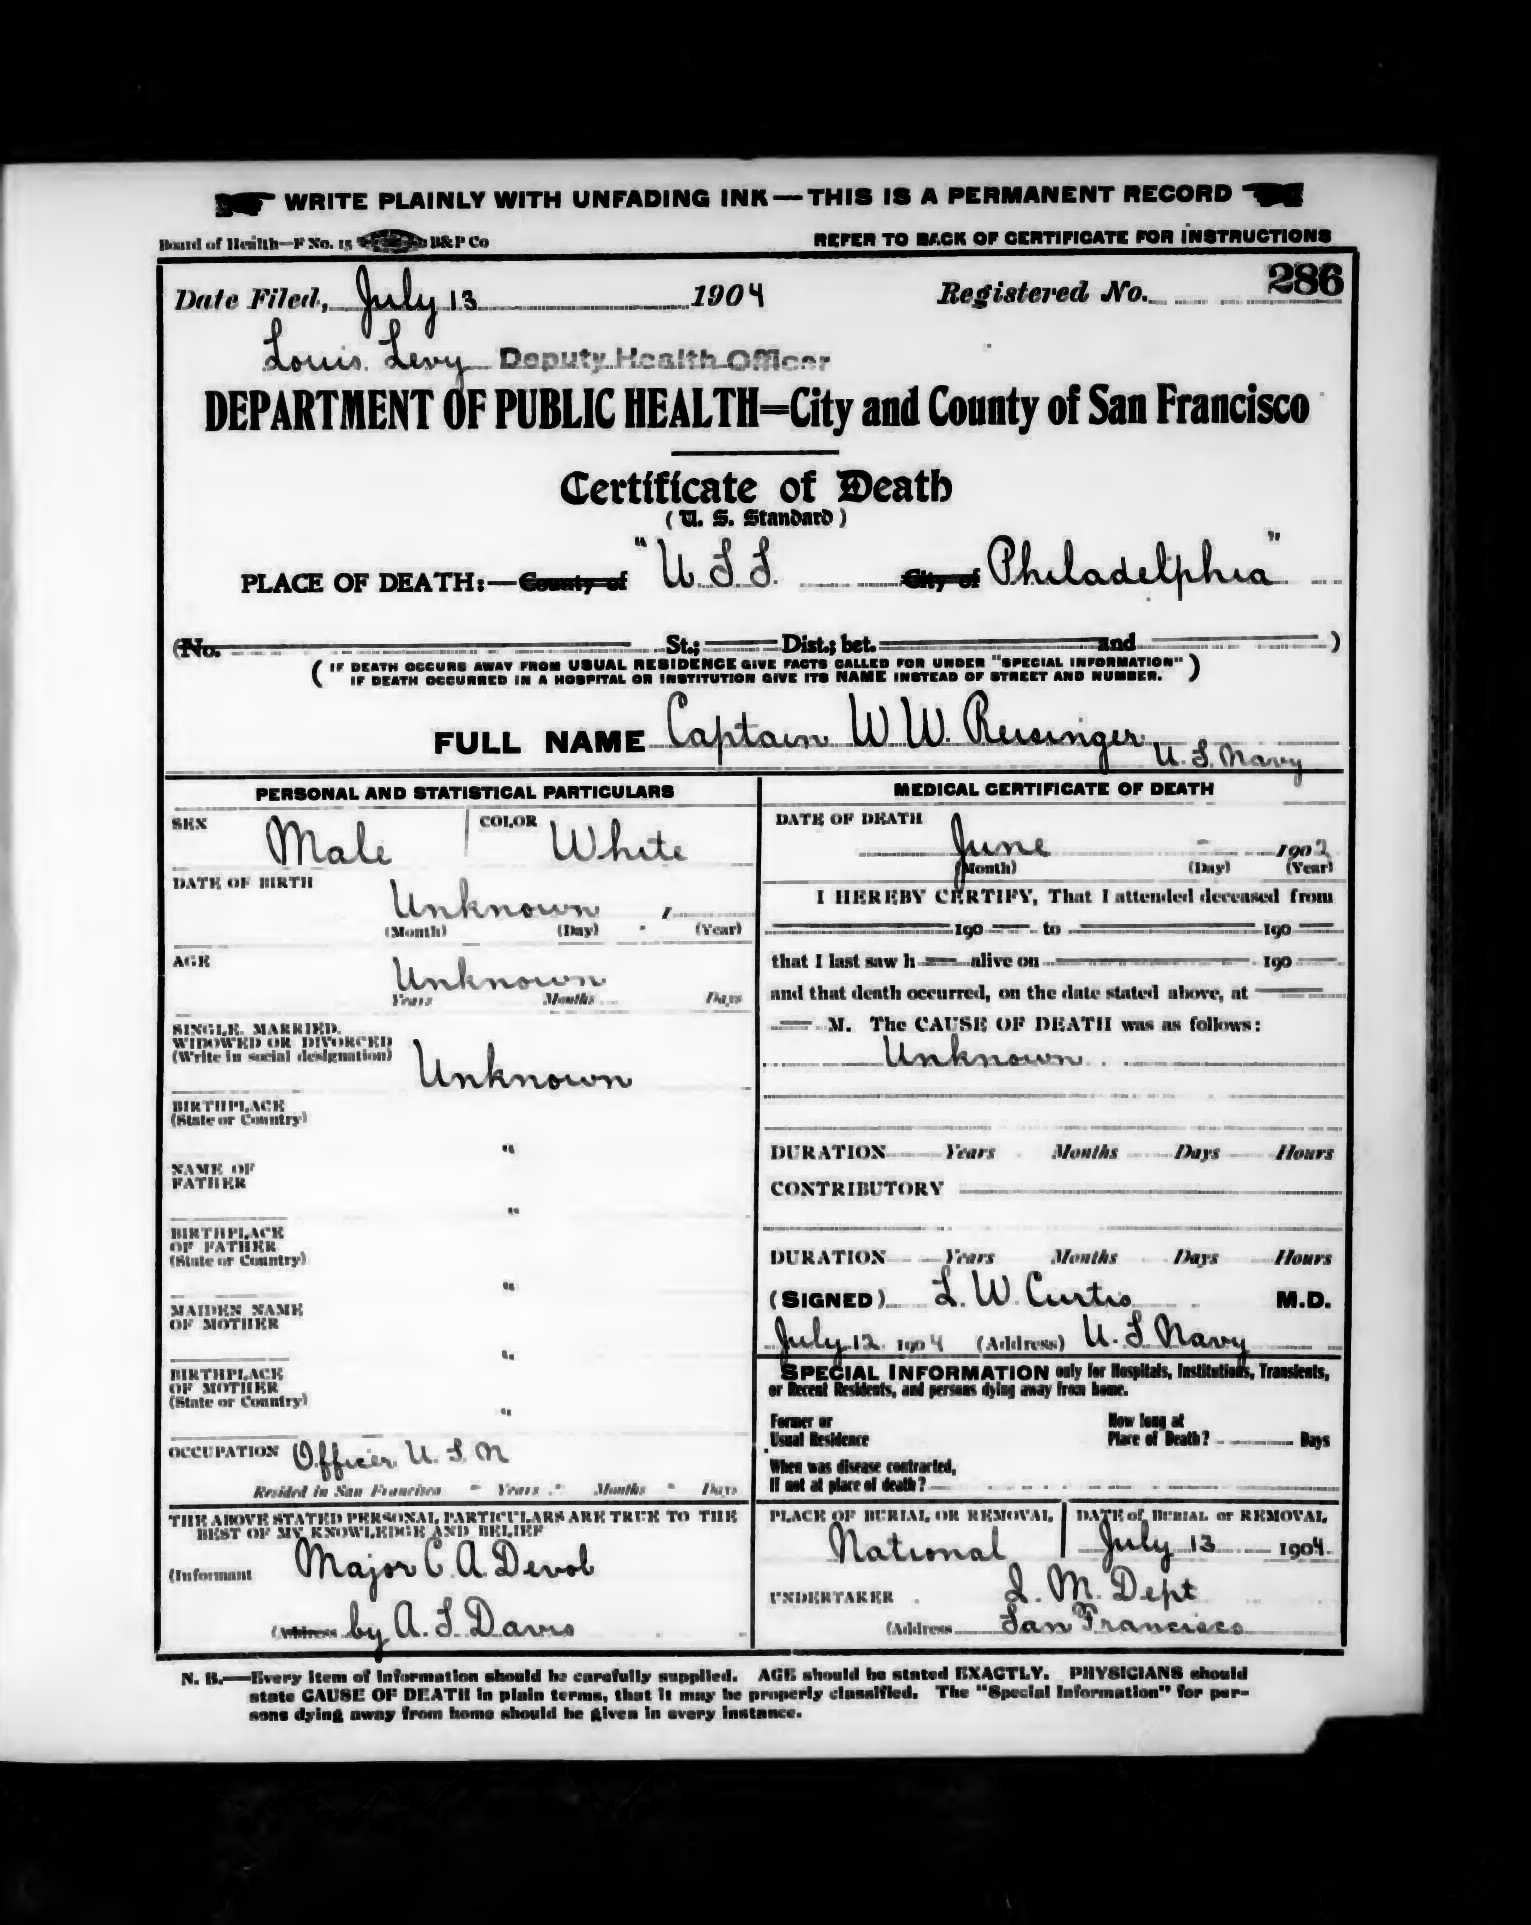 WRITE PLAINLY WITH UNFADING INK—THIS IS A PERMANENT RECORD
Board of Health—F No. 15 B&P Co REFER TO BACK OF CERTIFICATE FOR INSTRUCTIONS
Date Filed, July 13 1904 Registered No. 286
Louis Levy Deputy Health Officer
DEPARTMENT OF PUBLIC HEALTH=City and County of San Francisco
Certificate of Death
(U. S. Standard)
PLACE OF DEATH:—County of "U.S.S. City of Philadelphia"
(No. St.; Dist.; bet. and )
(IF DEATH OCCURS AWAY FROM USUAL RESIDENCE GIVE FACTS CALLED FOR UNDER "SPECIAL INFORMATION"
IF DEATH OCCURRED IN A HOSPITAL OR INSTITUTION GIVE ITS NAME INSTEAD OF STREET AND NUMBER.)
FULL NAME Captain W W. Reisinger U. S. Navy
PERSONAL AND STATISTICAL PARTICULARS
SEX Male COLOR White
DATE OF BIRTH
Unknown
(Month) (Day) (Year)
AGE
Unknown
Years Months Days
SINGLE, MARRIED,
WIDOWED OR DIVORCED
(Write in social designation)
Unknown
BIRTHPLACE
(State or Country)
"
NAME OF
FATHER
"
BIRTHPLACE
OF FATHER
(State or Country)
"
MAIDEN NAME
OF MOTHER
"
BIRTHPLACE
OF MOTHER
(State or Country)
"
OCCUPATION Officer U. S. N
Resided in San Francisco - Years - Months - Days
THE ABOVE STATED PERSONAL PARTICULARS ARE TRUE TO THE
BEST OF MY KNOWLEDGE AND BELIEF
(Informant Major C. A. Devol
(Address by A. S. Davis
MEDICAL CERTIFICATE OF DEATH
DATE OF DEATH
June - 1902
(Month) (Day) (Year)
I HEREBY CERTIFY, That I attended deceased from
190 to 190
that I last saw h alive on 190
and that death occurred, on the date stated above, at
M. The CAUSE OF DEATH was as follows:
Unknown
DURATION Years Months Days Hours
CONTRIBUTORY
DURATION Years Months Days Hours
(SIGNED) L. W. Curtis M.D.
July 12 1904 (Address) U. S. Navy
SPECIAL INFORMATION only for Hospitals, Institutions, Transients,
or Recent Residents, and persons dying away from home.
Former or
Usual Residence
How long at
Place of Death? Days
When was disease contracted,
If not at place of death?
PLACE OF BURIAL OR REMOVAL DATE of BURIAL or REMOVAL
National July 13 1904
UNDERTAKER Q. M. Dept
(Address San Francisco
N. B.—Every item of information should be carefully supplied. AGE should be stated EXACTLY. PHYSICIANS should
state CAUSE OF DEATH in plain terms, that it may be properly classified. The "Special Information" for per-
sons dying away from home should be given in every instance.